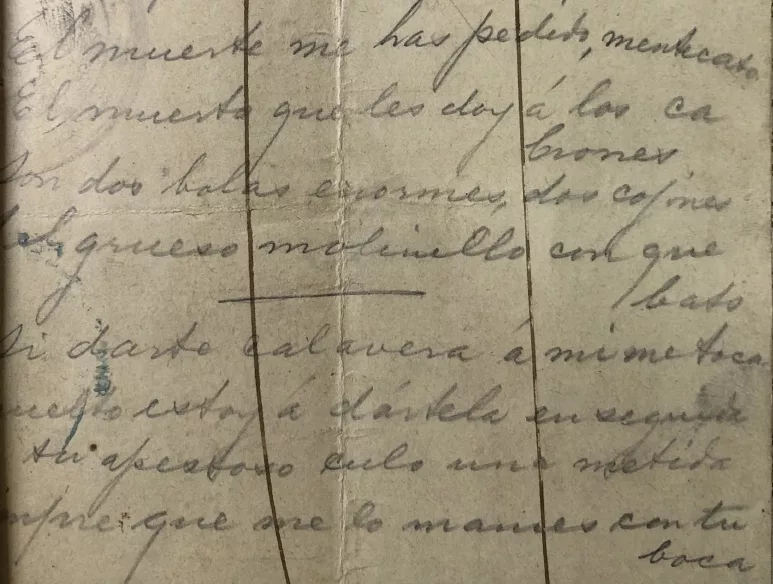 El muerto me has pedido, mentecato
El muerto que les doy á los ca
brones
son dos bolas enormes, dos cojones
del grueso molinillo con que
bato
Si darte calavera á mi me toca
uelto estoy á dártela en seguida
tu apestoso culo una metida
mpre que me lo mames con tu
boca